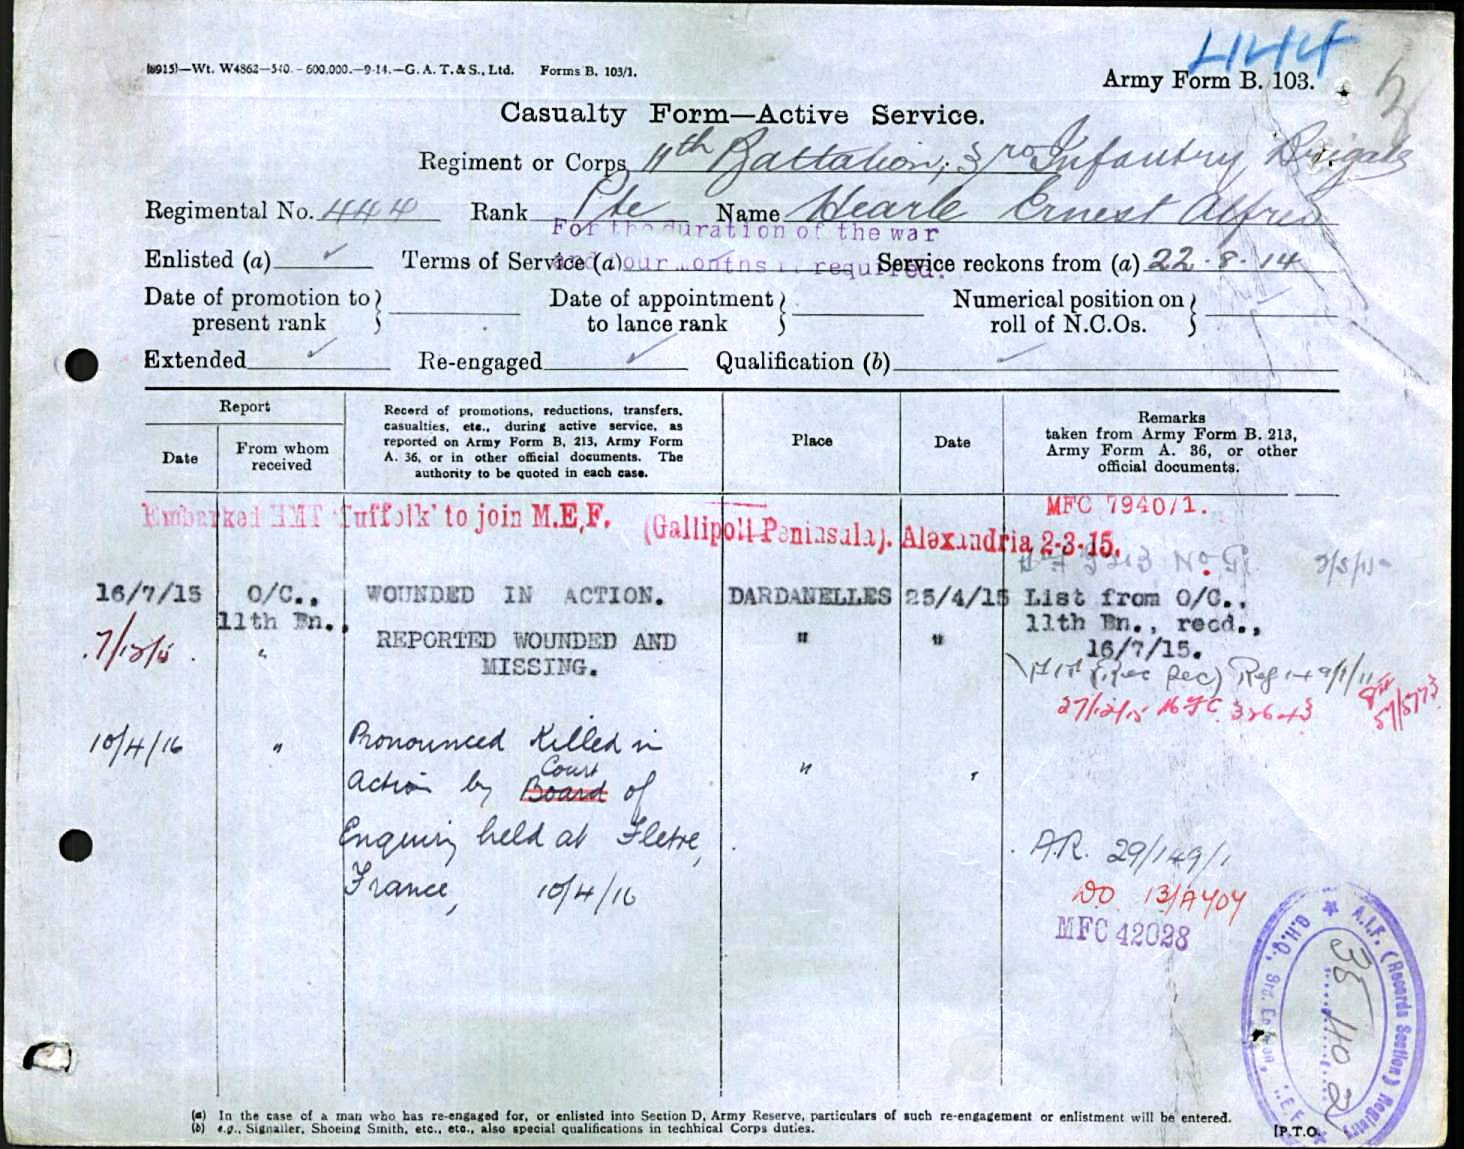 444
(8915)—Wt. W4862—540.—600,000.—9-14.—G. A. T. & S., Ltd. Forms B. 103/1.
Army Form B. 103.
Casualty Form—Active Service.
Regiment or Corps 11th Battalion, 3rd Infantry Brigade
Regimental No. 444 Rank Pte Name Hearle Ernest Alfred
For the duration of the war
Enlisted (a) Terms of Service (a) Service reckons from (a) 22.8.14
and four months if required.
Date of promotion to present rank
Date of appointment to lance rank
Numerical position on roll of N.C.Os.
Extended Re-engaged Qualification (b)
Report
Date
From whom received
Record of promotions, reductions, transfers,
casualties, etc., during active service, as
reported on Army Form B. 213, Army Form
A. 36, or in other official documents. The
authority to be quoted in each case.
Place
Date
Remarks
taken from Army Form B. 213,
Army Form A. 36, or other
official documents.
MFC 7940/1.
Embarked HMT 'Suffolk' to join M.E.F. (Gallipoli Peninsula). Alexandria 2-3-15.
16/7/15 O/C., WOUNDED IN ACTION. DARDANELLES 25/4/15 List from O/C.,
11th Bn., 11th Bn., recd.,
16/7/15.
7/12/15 " REPORTED WOUNDED AND " "
MISSING.
27/12/15
10/4/16 " Pronounced Killed in
Action by Board Court of " "
Enquiry held at Fletre,
France, 10/4/16
A.R. 29/149/1
DO 13/A404
MFC 42028
A.I.F. (Records Section) Registry
G.H.Q., 3rd. Echelon, M.E.F.
(a) In the case of a man who has re-engaged for, or enlisted into Section D, Army Reserve, particulars of such re-engagement or enlistment will be entered.
(b) e.g., Signaller, Shoeing Smith, etc., etc., also special qualifications in technical Corps duties.
[P.T.O.